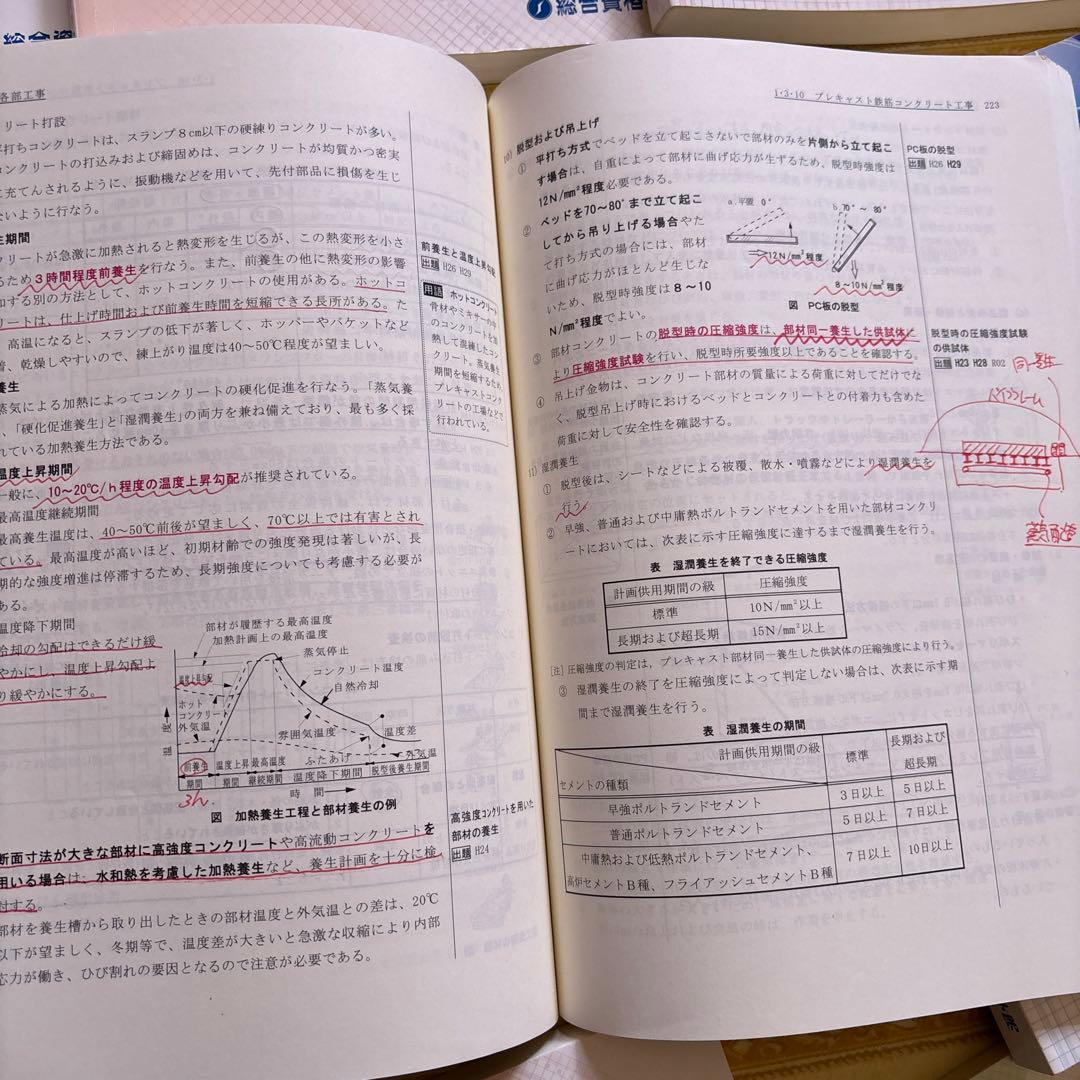 総合資格
総合資
各部工事
リート打設
平打ちコンクリートは、スランプ8cm以下の硬練りコンクリートが多い。
コンクリートの打込みおよび締固めは、コンクリートが均質かつ密実
に充てんされるように、振動機などを用いて、先付部品に損傷を生じ
ないように行なう。
生期間
クリートが急激に加熱されると熱変形を生じるが、この熱変形を小さ
るため3時間程度前養生を行なう。また、前養生の他に熱変形の影響
する別の方法として、ホットコンクリートの使用がある。ホットコ
リートは、仕上げ時間および前養生時間を短縮できる長所がある。た
高温になると、スランプの低下が著しく、ホッパーやバケットなど
着、乾燥しやすいので、練上がり温度は40～50℃程度が望ましい。
養生
蒸気による加熱によってコンクリートの硬化促進を行なう。「蒸気養
、「硬化促進養生」と「湿潤養生」の両方を兼ね備えており、最も多く採
れている加熱養生方法である。
温度上昇期間
一般に、10～20℃/h程度の温度上昇勾配が推奨されている。
最高温度継続期間
最高養生温度は、40～50℃前後が望ましく、70℃以上では有害とされ
ている。最高温度が高いほど、初期材齢での強度発現は著しいが、長
期的な強度増進は停滞するため、長期強度についても考慮する必要が
ある。
温度降下期間
冷却の勾配はできるだけ緩
やかにし、温度上昇勾配よ
り緩やかにする。
前養生と温度上昇勾配
出題 H26 H29
用語 ホットコンクリート
骨材やミキサー中
のコンクリートを加
熱して混練したコン
クリート。蒸気養生
期間を短縮するため、
プレキャストコンク
リートの工場などで
行われている。
部材が履歴する最高温度
加熱計画上の最高温度
蒸気停止
コンクリート温度
自然冷却
温度上昇勾配
ホット
コンクリート
外気温
雰囲気温度
温度差
外気温
ふたあげ
温度
前養生
期間
温度上昇
期間
最高温度
継続期間
温度降下期間
脱型後養生期間
時間
3h
図 加熱養生工程と部材養生の例
断面寸法が大きな部材に高強度コンクリートや高流動コンクリートを
用いる場合は、水和熱を考慮した加熱養生など、養生計画を十分に検
討する。
部材を養生槽から取り出したときの部材温度と外気温との差は、20℃
以下が望ましく、冬期等で、温度差が大きいと急激な収縮により内部
応力が働き、ひび割れの要因となるので注意が必要である。
高強度コンクリートを用いた
部材の養生
出題 H24
1・3・10 プレキャスト鉄筋コンクリート工事 223
10) 脱型および吊上げ
① 平打ち方式でベッドを立て起こさないで部材のみを片側から立て起こ
す場合は、自重によって部材に曲げ応力が生ずるため、脱型時強度は
12N/mm²程度必要である。
② ベッドを70～80°まで立て起こ
してから吊り上げる場合やた
て打ち方式の場合には、部材
に曲げ応力がほとんど生じな
いため、脱型時強度は8～10
N/mm²程度でよい。
a.平置 0°
12N/mm²程度
b.70°～80°
8～10N/mm²程度
図 PC板の脱型
③ 部材コンクリートの脱型時の圧縮強度は、部材同一養生した供試体に
より圧縮強度試験を行い、脱型時所要強度以上であることを確認する。
④ 吊上げ金物は、コンクリート部材の質量による荷重に対してだけでな
く、脱型吊上げ時におけるベッドとコンクリートとの付着力も含めた
荷重に対して安全性を確認する。
11) 湿潤養生
① 脱型後は、シートなどによる被覆、散水・噴霧などにより湿潤養生を
行う。
② 早強、普通および中庸熱ポルトランドセメントを用いた部材コンクリ
ートにおいては、次表に示す圧縮強度に達するまで湿潤養生を行う。
表 湿潤養生を終了できる圧縮強度
計画供用期間の級 圧縮強度
標準 10N/mm²以上
長期および超長期 15N/mm²以上
[注] 圧縮強度の判定は、プレキャスト部材同一養生した供試体の圧縮強度により行う。
③ 湿潤養生の終了を圧縮強度によって判定しない場合は、次表に示す期
間まで湿潤養生を行う。
表 湿潤養生の期間
計画供用期間の級 標準 長期および
超長期
セメントの種類
早強ポルトランドセメント 3日以上 5日以上
普通ポルトランドセメント 5日以上 7日以上
中庸熱および低熱ポルトランドセメント、
高炉セメントB種、フライアッシュセメントB種 7日以上 10日以上
PC板の脱型
出題 H26 H29
脱型時の圧縮強度試験
の供試体
出題 H23 H28 R02
同一養生